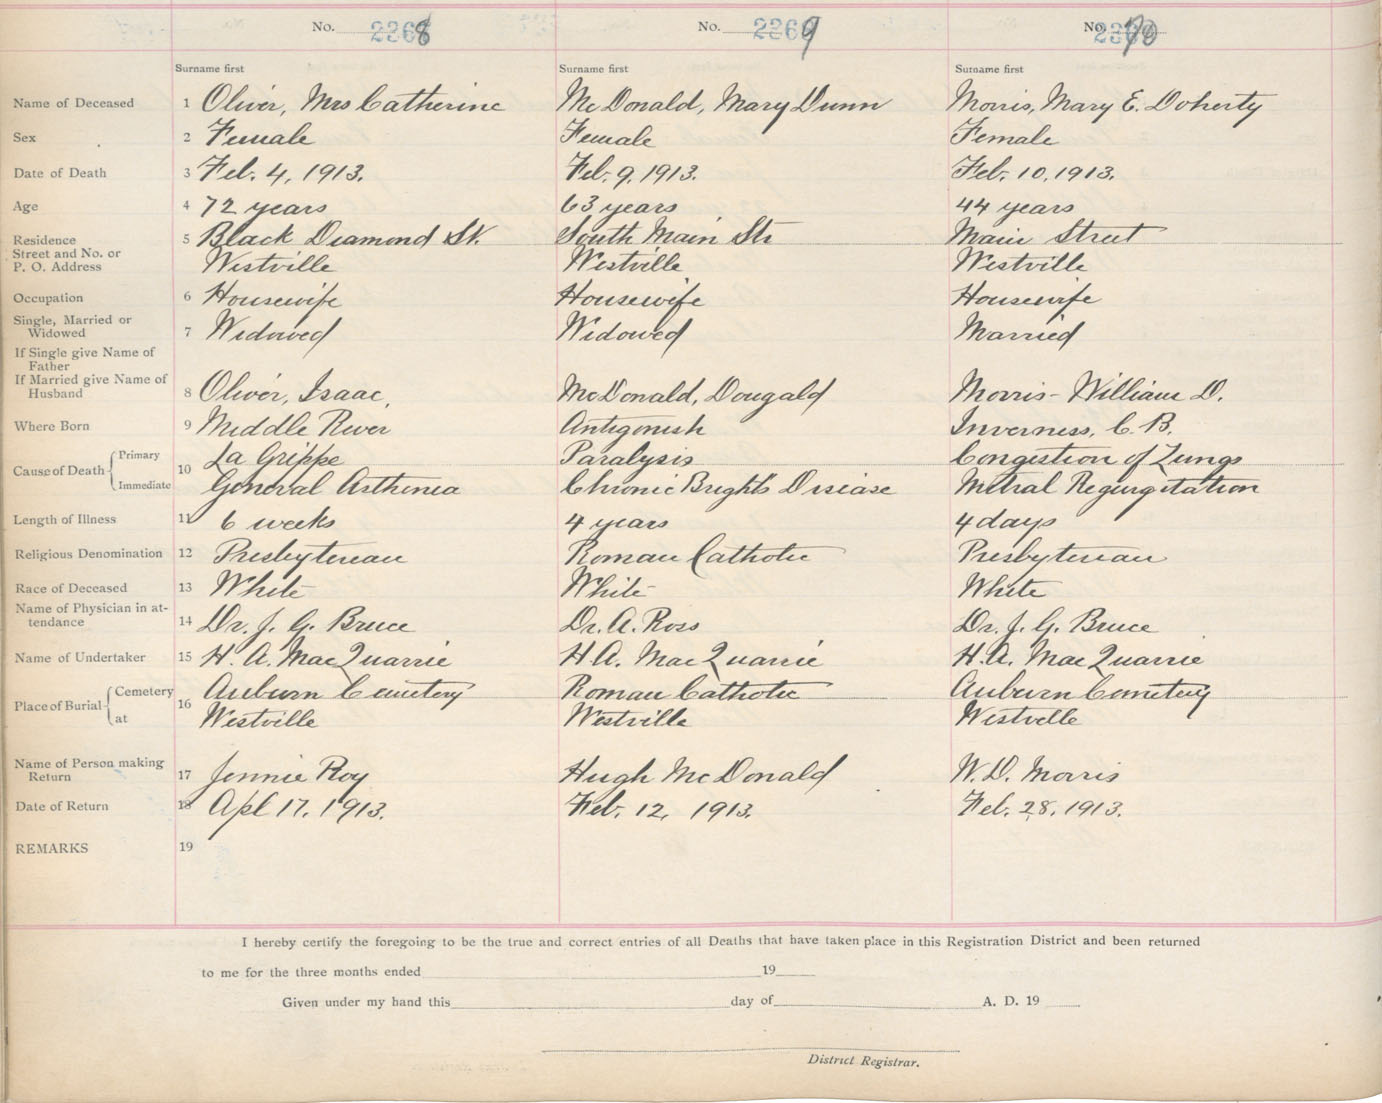 No. 2268 No. 2269 No.
Surname first Surname first Surname first
Name of Deceased 1 Oliver, Mrs Catherine McDonald, Mary Dunn Morris, Mary E. Doherty
Sex 2 Female Female Female
Date of Death 3 Feb. 4, 1913. Feb. 9, 1913. Feb. 10, 1913.
Age 4 72 years 63 years 44 years
Residence 5 Black Diamond St. South Main Str Main Street
Street and No. or
P. O. Address Westville Westville Westville
Occupation 6 Housewife Housewife Housewife
Single, Married or
Widowed 7 Widowed Widowed Married
If Single give Name of
Father
If Married give Name of
Husband 8 Oliver, Isaac, McDonald, Dougald Morris - William D.
Where Born 9 Middle River Antigonish Inverness, C. B.
Cause of Death 10 Primary La Grippe Paralysis Congestion of Lungs
Immediate General Asthenia Chronic Bright's Disease Mitral Regurgitation
Length of Illness 11 6 weeks 4 years 4 days
Religious Denomination 12 Presbyterian Roman Catholic Presbyterian
Race of Deceased 13 White White White
Name of Physician in at-
tendance 14 Dr. J. G. Bruce Dr. A. Ross Dr. J. G. Bruce
Name of Undertaker 15 H. A. MacQuarrie H. A. MacQuarrie H. A. MacQuarrie
Place of Burial 16 Cemetery Auburn Cemetery Roman Catholic Auburn Cemetery
at Westville Westville Westville
Name of Person making
Return 17 Jennie Roy Hugh McDonald W. D. Morris
Date of Return 18 Apl 17, 1913. Feb. 12, 1913. Feb. 28, 1913.
REMARKS 19
I hereby certify the foregoing to be the true and correct entries of all Deaths that have taken place in this Registration District and been returned
to me for the three months ended 19
Given under my hand this day of A. D. 19
District Registrar.